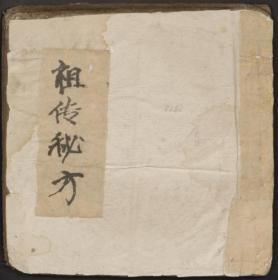 祖传秘方